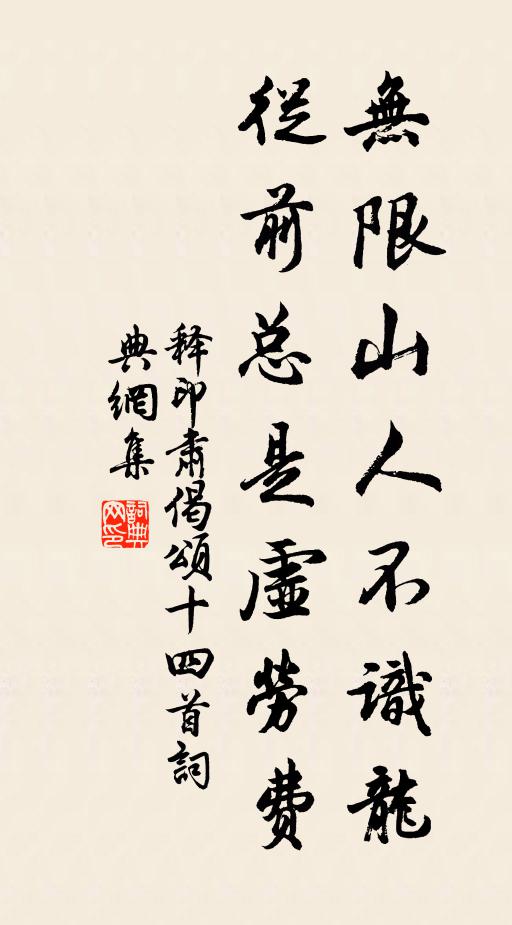 無限山人不識龍
從前总是虛勞費
释印肃偈頌十四首詞
典網集
詞典
网印